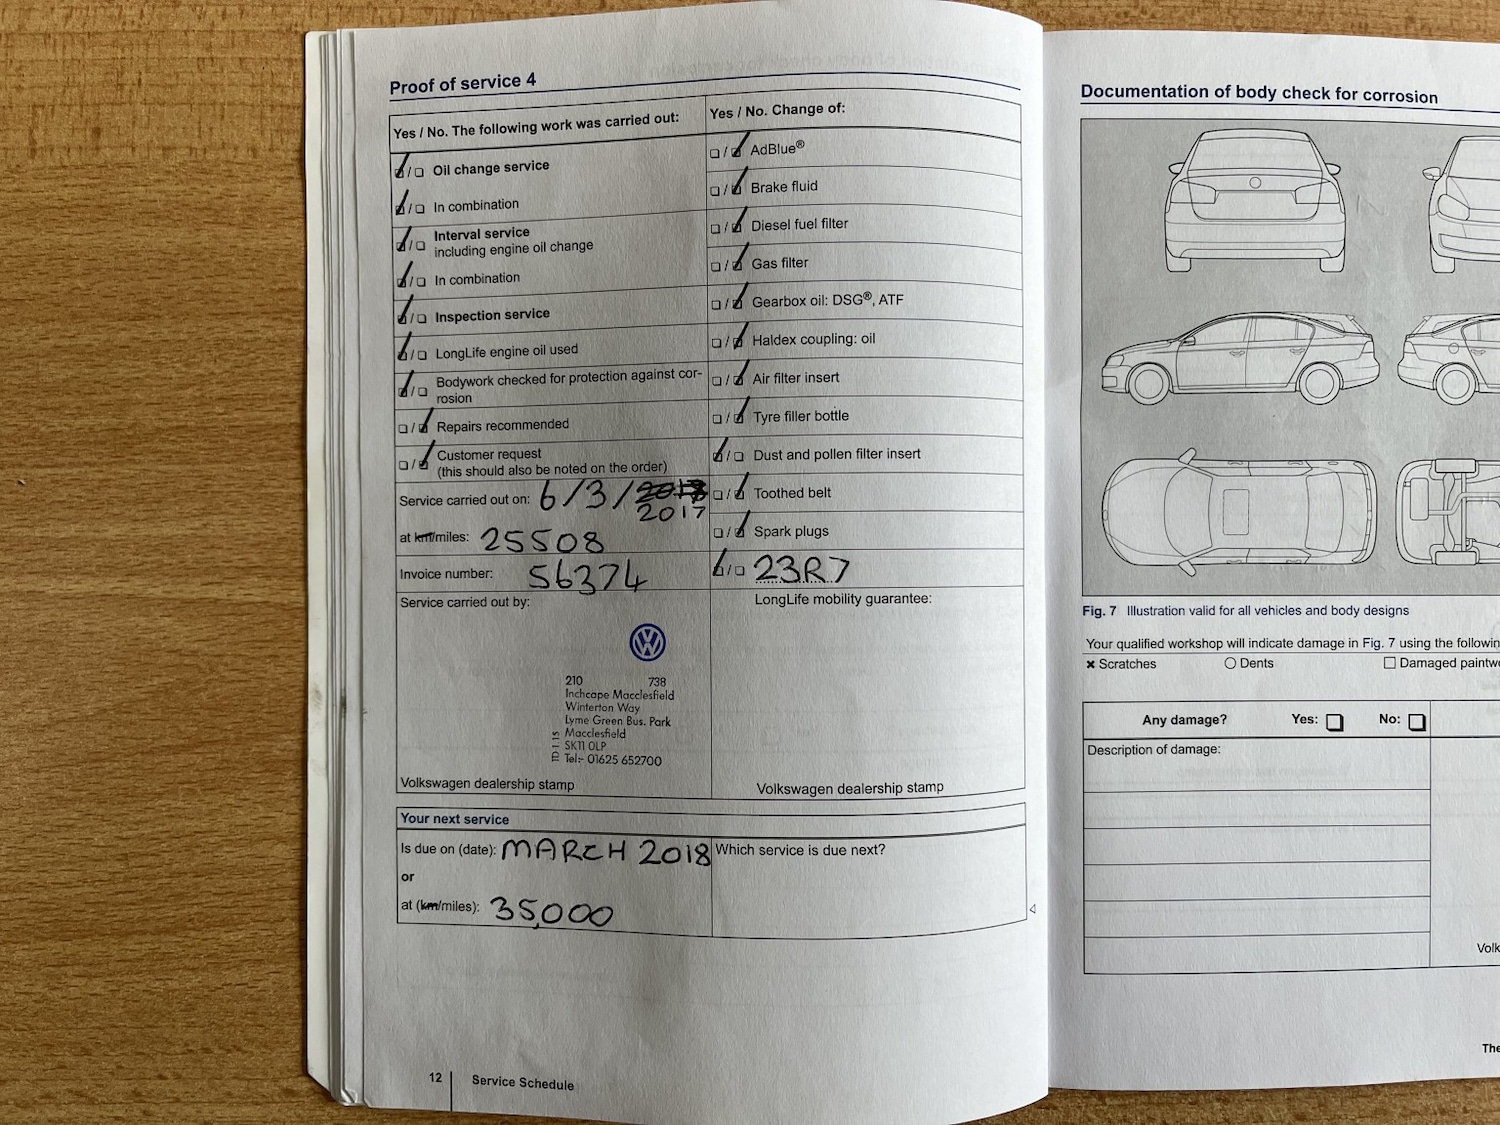 Proof of service 4
Yes / No. The following work was carried out:
Oil change service
In combination
Interval service
including engine oil change
In combination
Inspection service
LongLife engine oil used
Bodywork checked for protection against cor-
rosion
Repairs recommended
Customer request
(this should also be noted on the order)
Service carried out on: 6/3/ 2017
at km/miles: 25508
Invoice number: 56374
Service carried out by:
210 738
Inchcape Macclesfield
Winterton Way
Lyme Green Bus. Park
Macclesfield
SK11 0LP
Tel:- 01625 652700
Volkswagen dealership stamp
Yes / No. Change of:
AdBlue®
Brake fluid
Diesel fuel filter
Gas filter
Gearbox oil: DSG®, ATF
Haldex coupling: oil
Air filter insert
Tyre filler bottle
Dust and pollen filter insert
Toothed belt
Spark plugs
23R7
LongLife mobility guarantee:
Volkswagen dealership stamp
Your next service
Is due on (date): MARCH 2018
or
at (km/miles): 35,000
Which service is due next?
12 Service Schedule
Documentation of body check for corrosion
Fig. 7 Illustration valid for all vehicles and body designs
Your qualified workshop will indicate damage in Fig. 7 using the
Scratches Dents Damaged
Any damage? Yes: No:
Description of damage: